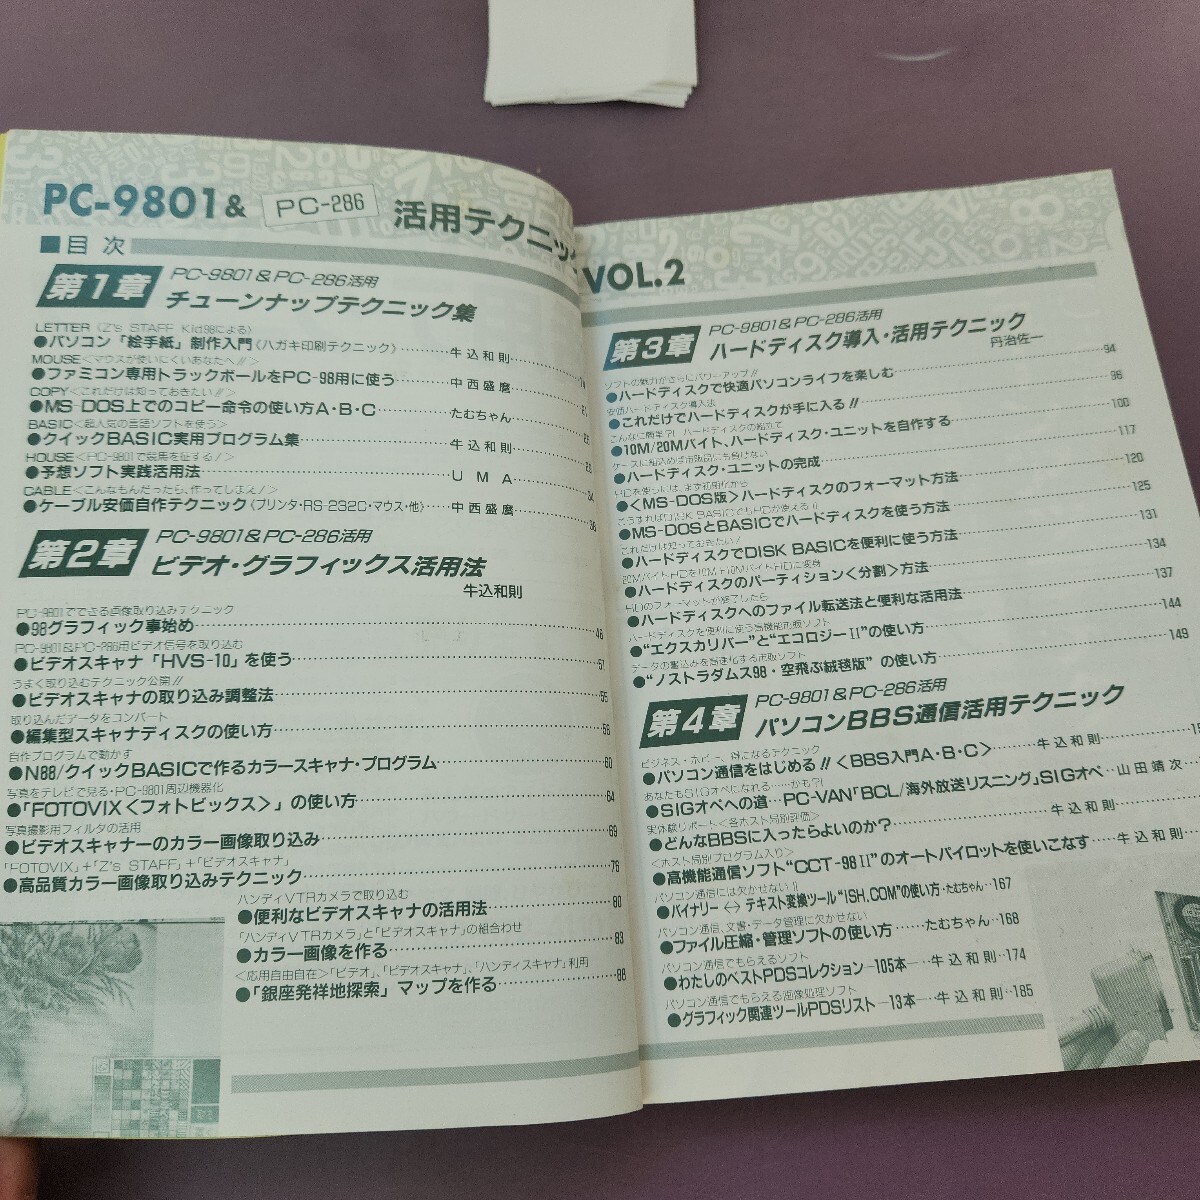 PC-9801 & PC-286 活用テクニック
■目次
第1章 PC-9801&PC-286活用
チューンナップテクニック集
LETTER〈Z's STAFF Kid98による〉
●パソコン「絵手紙」制作入門〈ハガキ印刷テクニック〉………牛込和則
MOUSE<マウスが使いにくいあなたへ!!>
●ファミコン専用トラックボールをPC-98用に使う………中西盛麿
COPY<これだけは知っておきたい!!>
●MS-DOS上でのコピー命令の使い方A・B・C………たむちゃん
BASIC<超人気の言語ソフトを使う>
●クイックBASIC実用プログラム集………牛込和則
HOUSE<PC-9801で競馬を征する!>
●予想ソフト実践活用法………UMA
CABLE<こんなもんだったら、作ってしまえ!>
●ケーブル安価自作テクニック〈プリンタ・RS-232C・マウス・他〉………中西盛麿 36
第2章 PC-9801&PC-286活用
ビデオ・グラフィックス活用法
牛込和則
PC-9801でできる画像取り込みテクニック
●98グラフィック事始め………46
PC-9801&PC-286用ビデオ信号を取り込む
●ビデオスキャナ「HVS-10」を使う………51
うまく取り込むテクニック公開!!
●ビデオスキャナの取り込み調整法………55
取り込んだデータをコンバート
●編集型スキャナディスクの使い方………56
自作プログラムで動かす
●N88/クイックBASICで作るカラースキャナ・プログラム………60
写真をテレビで見る・PC-9801周辺機器化
●「FOTOVIX<フォトビックス>」の使い方………64
写真撮影用フィルタの活用
●ビデオスキャナーのカラー画像取り込み………69
「FOTOVIX」+「Z's STAFF」+「ビデオスキャナ」
●高品質カラー画像取り込みテクニック………76
ハンディVTRカメラで取り込む
●便利なビデオスキャナの活用法………80
「ハンディVTRカメラ」と「ビデオスキャナ」の組合わせ
●カラー画像を作る………83
<応用自由自在>「ビデオ」、「ビデオスキャナ」、「ハンディスキャナ」利用
●「銀座発祥地探索」マップを作る………88
VOL.2
第3章 PC-9801&PC-286活用
ハードディスク導入・活用テクニック
丹治佐一
ソフトの魅力がさらにパワーアップ!!
●ハードディスクで快適パソコンライフを楽しむ………94
安価ハードディスク導入法
●これだけでハードディスクが手に入る!!………96
こんなに簡単?! ハードディスクの組立て
●10M/20Mバイト、ハードディスク・ユニットを自作する………100
ケースに組込めば市販品にも負けない
●ハードディスク・ユニットの完成………117
HDを使うには、まず初期化から
●<MS-DOS版>ハードディスクのフォーマット方法………120
こうすればDISK BASICでもHDが使える!!
●MS-DOSとBASICでハードディスクを使う方法………125
これだけは知っておきたい!
●ハードディスクでDISK BASICを便利に使う方法………131
20MバイトHDを10M+10MバイトHDに変身
●ハードディスクのパーティション<分割>方法………134
HDのフォーマットが終了したら
●ハードディスクへのファイル転送法と便利な活用法………137
ハードディスクを便利に使う高機能市販ソフト
●“エクスカリバー”と“エコロジーII”の使い方………144
データの書込みを高速化する市販ソフト
●“ノストラダムス98・空飛ぶ絨毯版”の使い方………149
第4章 PC-9801&PC-286活用
パソコンBBS通信活用テクニック
ビジネス・ホビー、得になるテクニック
●パソコン通信をはじめる!!<BBS入門A・B・C>………牛込和則
あなたもSIGオペになれる……かも?!
●SIGオペへの道…PC-VAN「BCL/海外放送リスニング」SIGオペ‥山田靖次
実体験リポート<各ホスト局別評価>
●どんなBBSに入ったらよいのか?………牛込和則
<ホスト局別プログラム入り>
●高機能通信ソフト“CCT-98II”のオートパイロットを使いこなす……牛込和則
パソコン通信には欠かせない!!
●バイナリー ↔ テキスト変換ツール“ISH.COM”の使い方・たむちゃん‥167
パソコン通信、文書・データ管理に欠かせない
●ファイル圧縮・管理ソフトの使い方……たむちゃん‥168
パソコン通信でもらえるソフト
●わたしのベストPDSコレクション―105本―‥牛込和則‥174
パソコン通信でもらえる画像処理ソフト
●グラフィック関連ツールPDSリスト―13本―‥牛込和則‥185